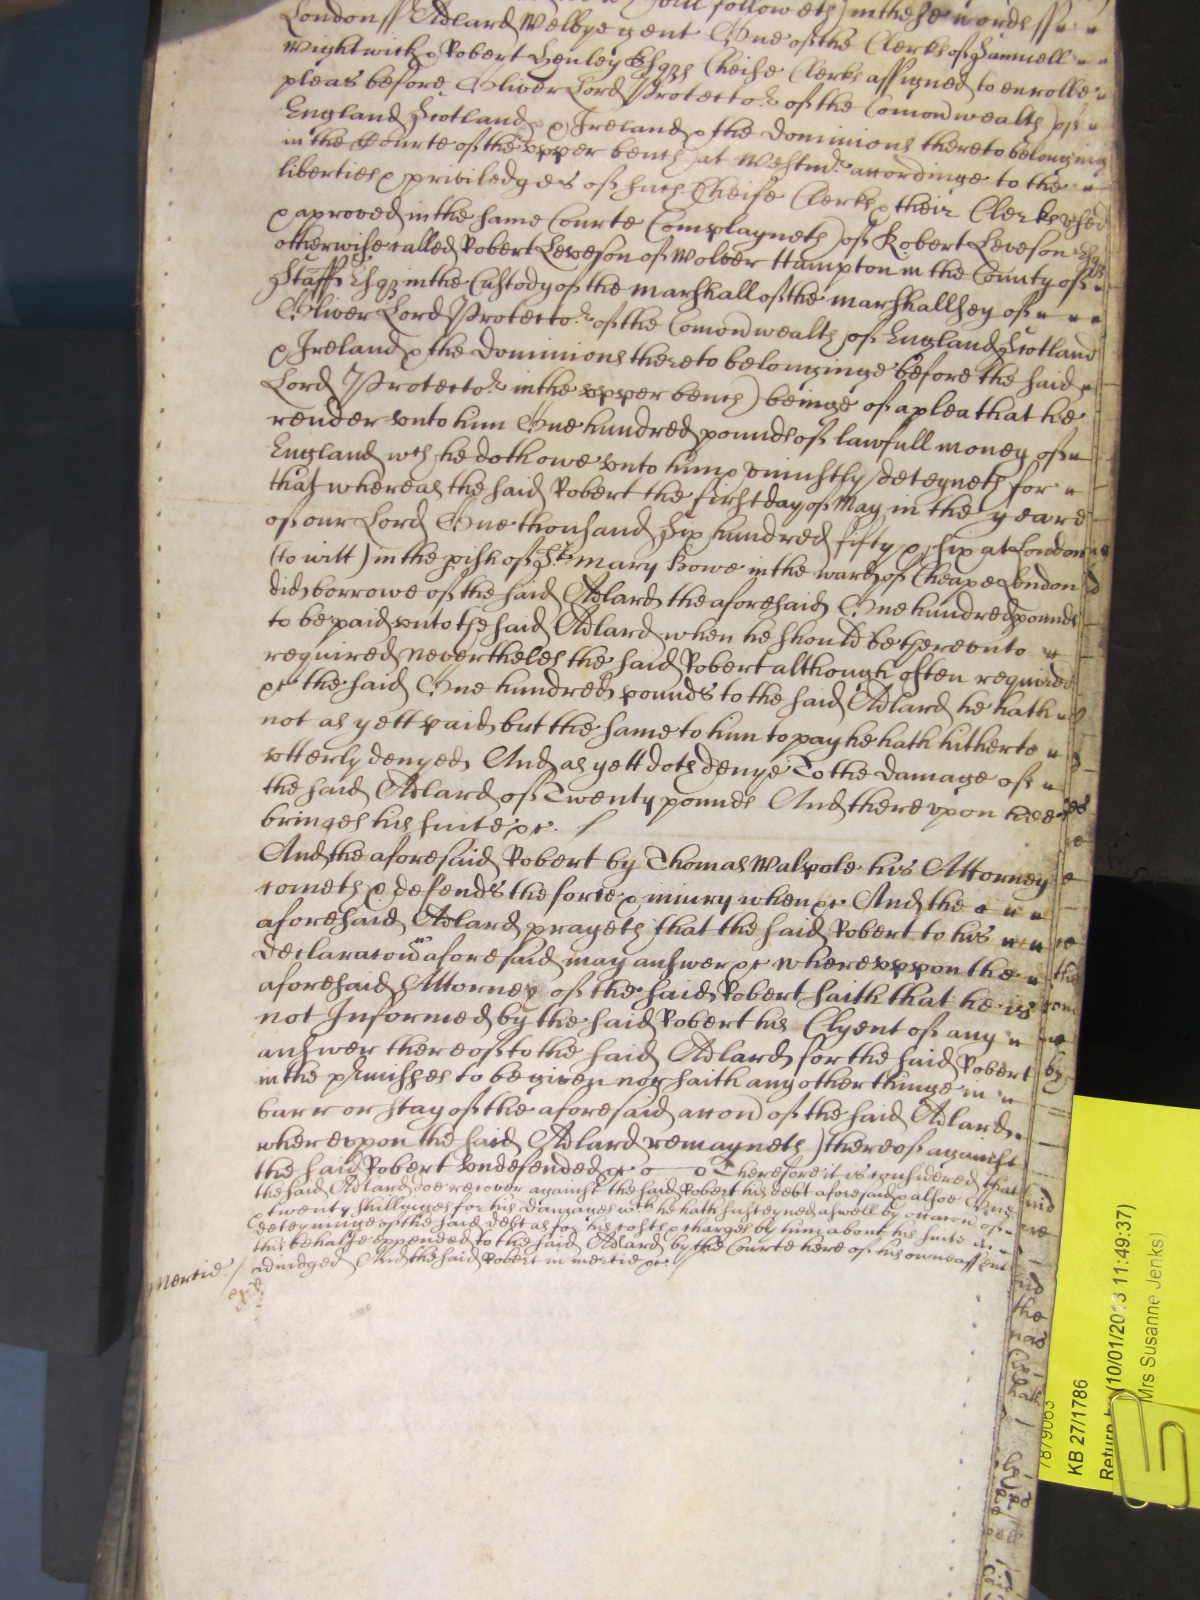 will followeth in these words ss
London ss Adlard Welbye gent One of the Clerks of Samuell
Wightwick & Robert Henley Esqrs Cheife Clerks assigned to enrolle
pleas before Oliver Lord Protector of the Comonwealth of
England Scotland & Ireland & the dominions thereto belonging
in the Courte of the upper bench at Westmr accordinge to the
liberties & priviledges of such Cheife Clerks & their Clerks used
& aproved in the same Courte Complayneth of Robert Leveson Esqr
otherwise called Robert Leveson of Wolver Hampton in the County of
Staff Esqr in the Custody of the marshall of the marshallsey of
Oliver Lord Protector of the Comonwealth of England Scotland
& Ireland & the dominions thereto belonginge before the said
Lord Protector in the upper bench) beinge of a plea that he
render unto him One hundred pounds of lawfull money of
England wch he doth owe unto him & uniustly deteyneth for
that whereas the said Robert the first day of May in the yeare
of our Lord One thousand Six hundred fifty & six at London
(to witt) in the pish of St mary Bowe in the ward of Cheape London
did borrowe of the said Adlard the aforesaid One hundred pounds
to be paid unto the said Adlard when he should be thereunto
required neverthelesse the said Robert although often required
&c the said One hundred pounds to the said Adlard he hath
not as yett paid but the same to him to pay he hath hitherto
utterly denyed And as yett doth denye To the damage of
the said Adlard of Twenty pounds And thereupon hee
bringes his suite &c.
And the aforesaid Robert by Thomas Walpole his Attorney
cometh & defends the force & iniury when &c And the
aforesaid Adlard prayeth that the said Robert to his
declaracon aforesaid may answer &c whereuppon the
aforesaid Attorney of the said Robert saith that he is
not Informed by the said Robert his Clyent of any
answer thereof to the said Adlard for the said Robert
in the pmisses to be given nor saith any other thinge in
barr or stay of the aforesaid accon of the said Adlard
whereupon the said Adlard remayneth thereof against
the said Robert undefended &c Therefore it is considered that
the said Adlard doe recover against the said Robert his debt aforesaid & alsoe One
& twenty shillynges for his damages wch he hath susteyned aswell by occacon of
deteyninge of the said debt as for his costs & charges by him about his suite in
this behalfe expended to the said Adlard by the Courte here of his owne assent
adiudged And the said Robert in mercie &c
Mercie
KB 27/1786
(10/01/2013 11:49:37)
Mrs Susanne Jenks)